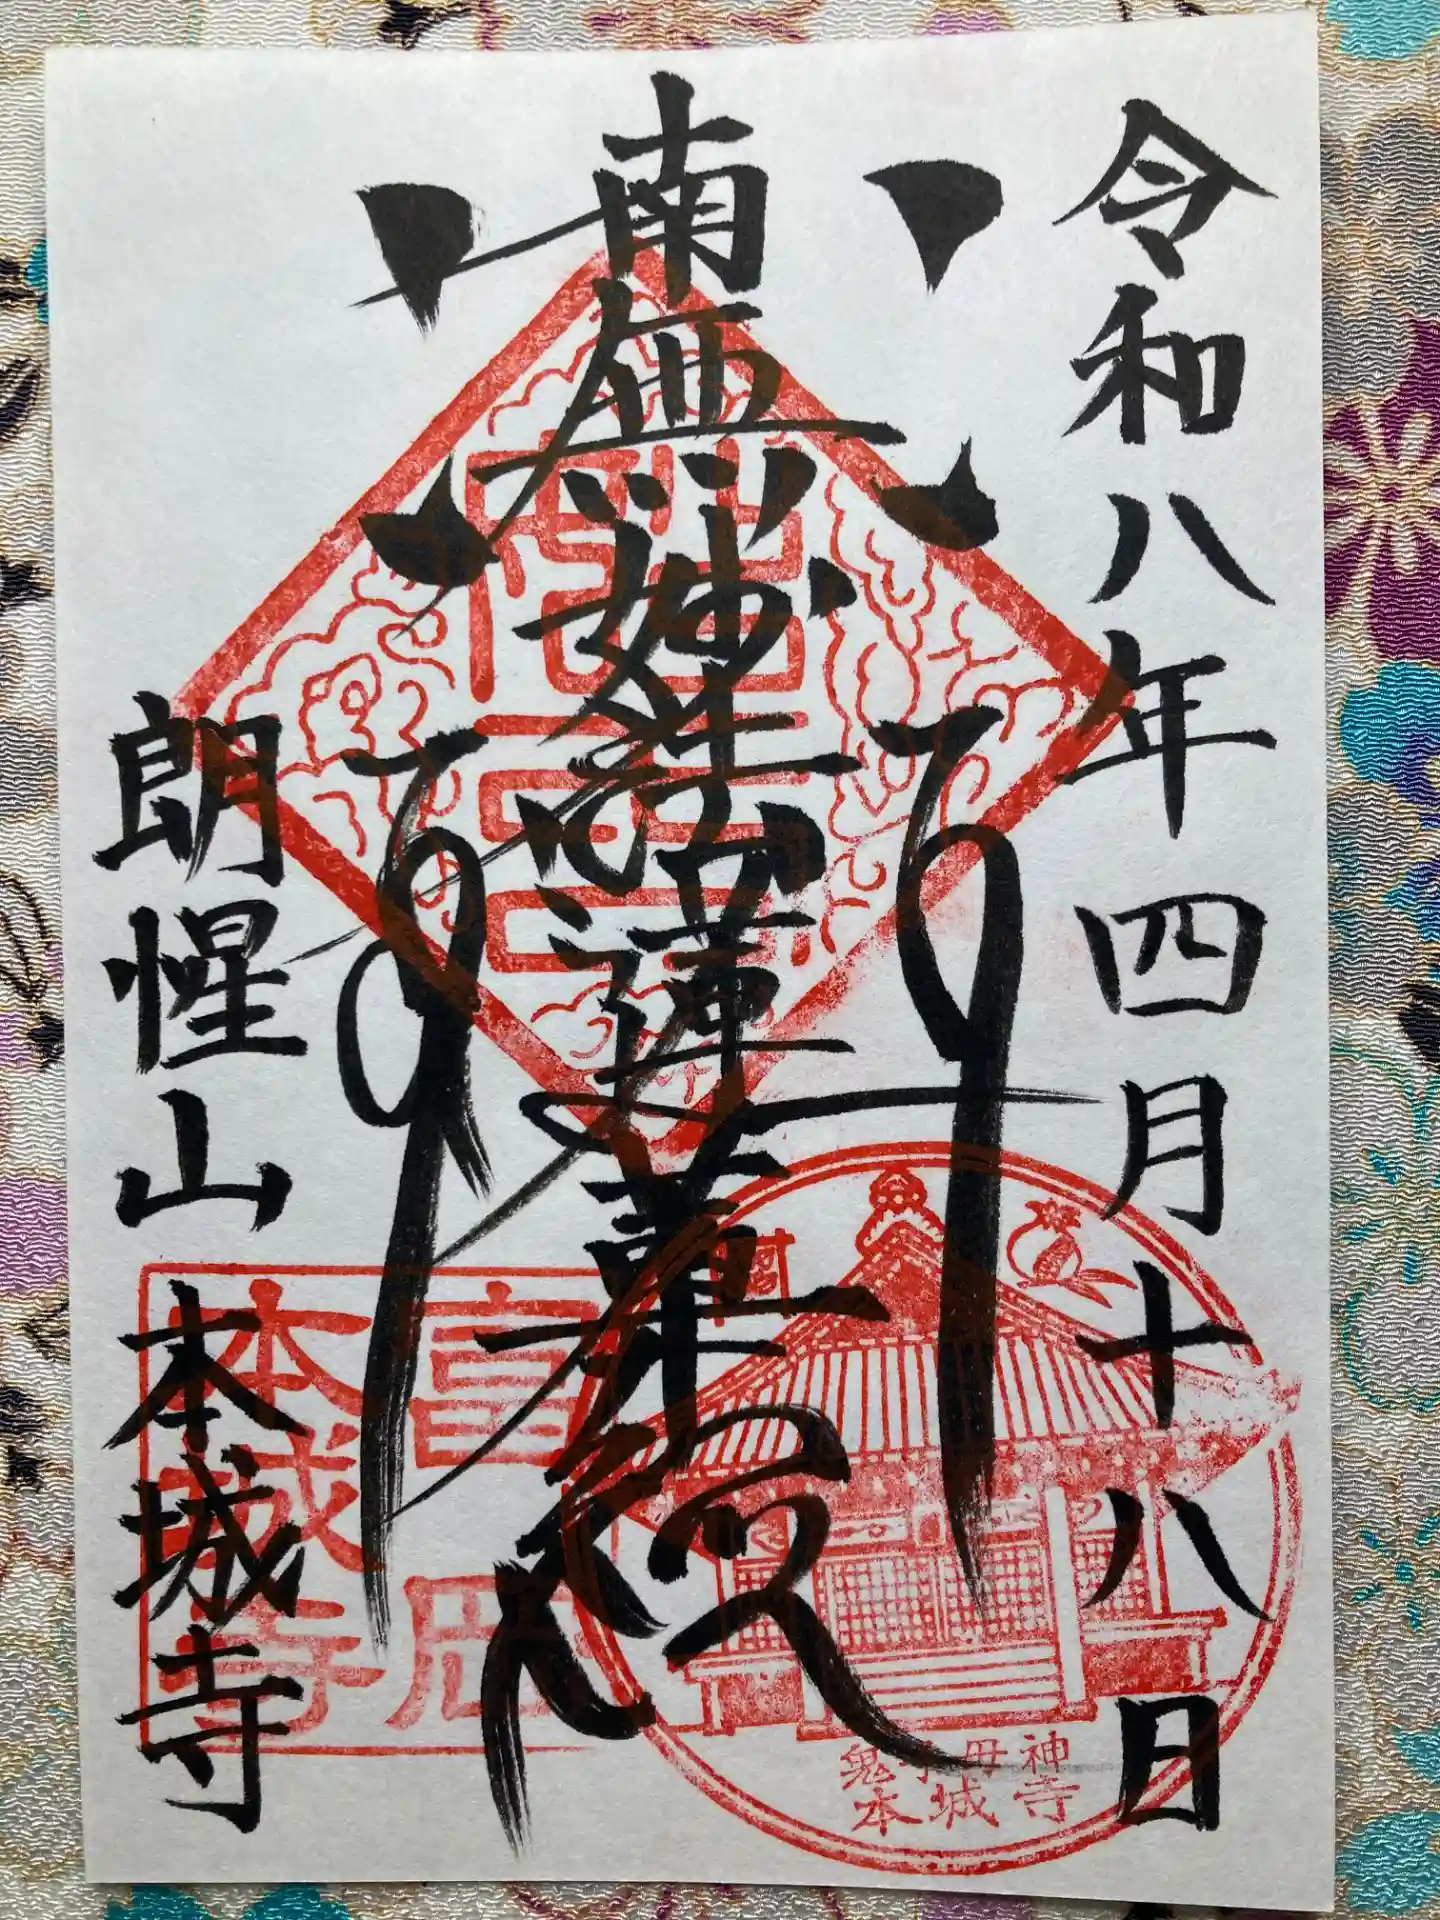 令和八年四月十八日
南無妙法蓮華経
朗惺山 本城寺
本城寺
鬼子母神
本城寺